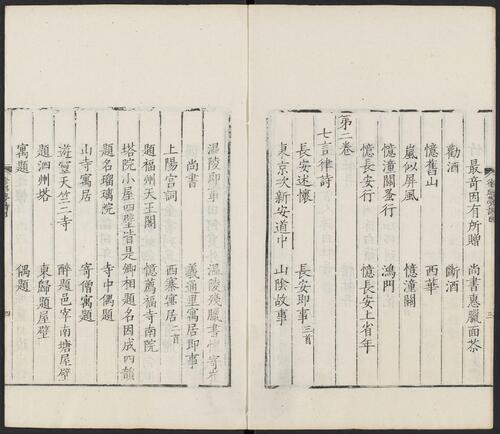 最奇因有所贈　尚書惠臘面茶
勸酒　斷酒
憶舊山　西華
嵐似屏風　憶潼關
憶潼關蚤行　鴻門
憶長安行　憶長安上省年
第二卷
七言律詩
長安述懷　長安即事三首
東京次新安道中　山陰故事
溫陵即事　溫陵殘臘書懷寄崔
尚書　義通里寓居即事
上陽宮詞　西寨寓居二首
題福州天王閣　憶薦福寺南院
塔院小屋四壁皆是卿相題名因成四韻
題名琉璃院　寺中偶題
山寺寓居　寄僧寓題
遊靈天竺二寺　醉題邑宰南塘屋壁
題泗州塔　東歸題屋壁
寓題　偶題
三
四